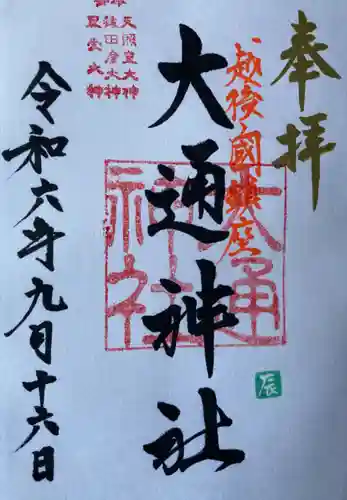 奉拝
越後國鎮座
大通神社
大通神社
辰
天照皇大神
猿田彦大神
令和六年九月十六日